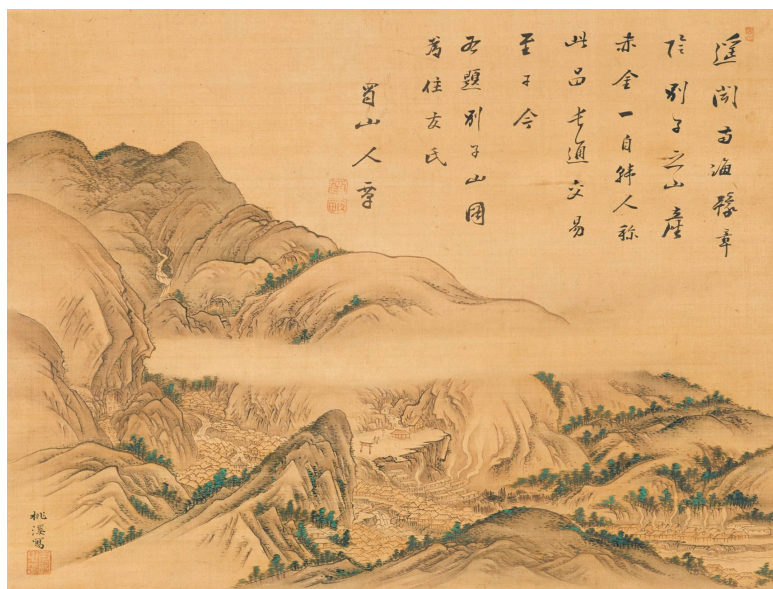 遥聞南海豫章
陰別子之山産
赤金一自人称
此品長通交易
至于今
右題別子山図
為住友氏
蜀山人覃
桃渓写